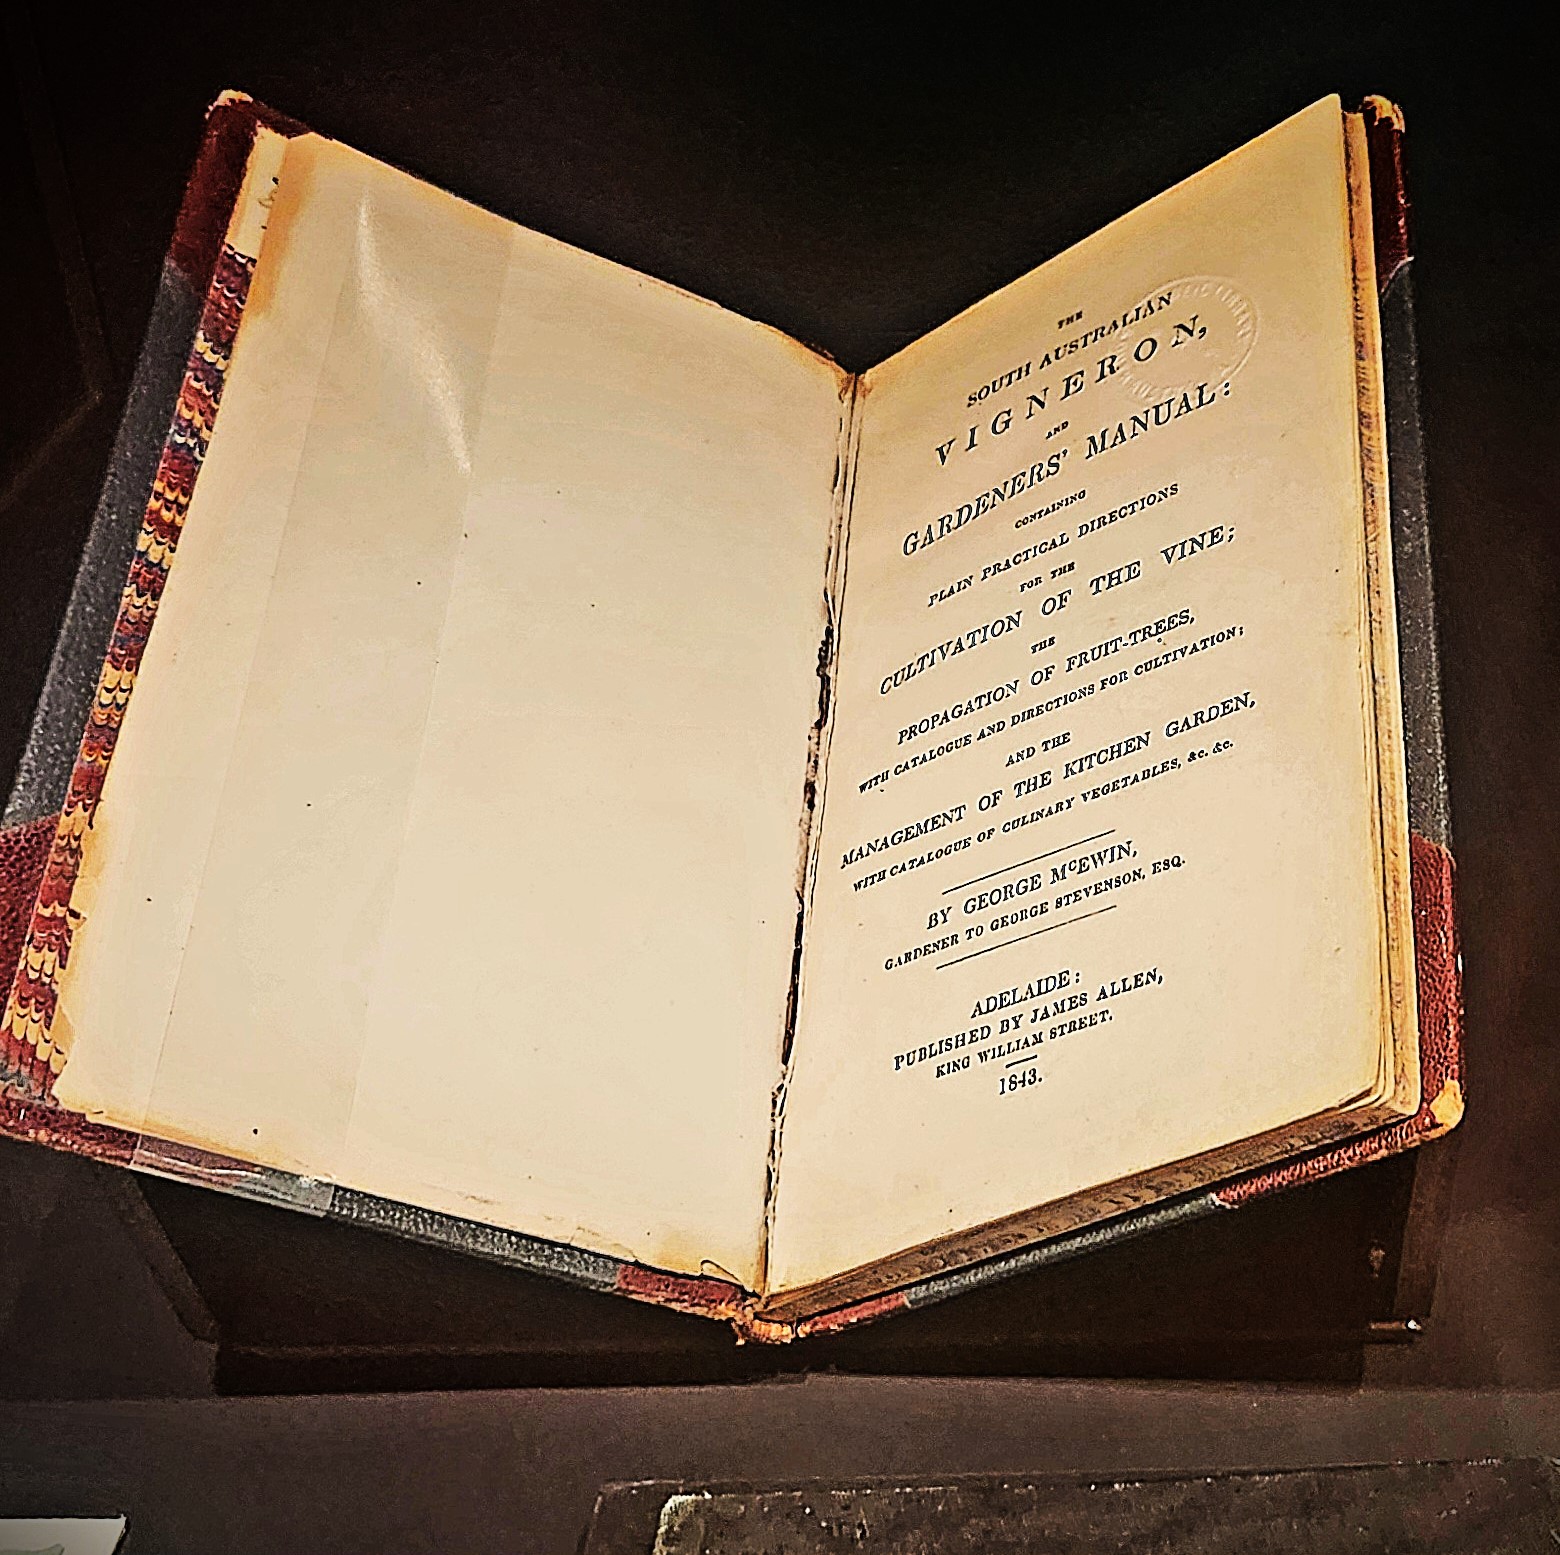 THE
SOUTH AUSTRALIAN
VIGNERON,
AND
GARDENERS' MANUAL:
CONTAINING
PLAIN PRACTICAL DIRECTIONS
FOR THE
CULTIVATION OF THE VINE;
THE
PROPAGATION OF FRUIT-TREES,
WITH CATALOGUE AND DIRECTIONS FOR CULTIVATION;
AND THE
MANAGEMENT OF THE KITCHEN GARDEN,
WITH CATALOGUE OF CULINARY VEGETABLES, &c. &c.
BY GEORGE McEWIN,
GARDENER TO GEORGE STEVENSON, ESQ.
ADELAIDE:
PUBLISHED BY JAMES ALLEN,
KING WILLIAM STREET.
1843.